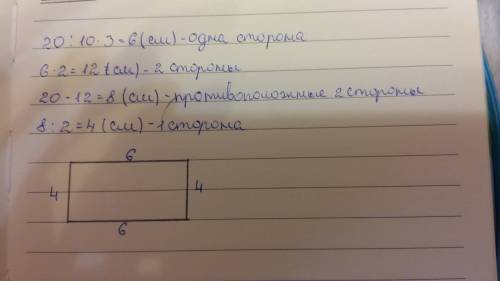 20:10·3=6(см)-одна сторона
6·2=12(см)-2 стороны
20-12=8(см)-противоположные 2 стороны
8:2=4(см)-1 сторона
6
4 4
6